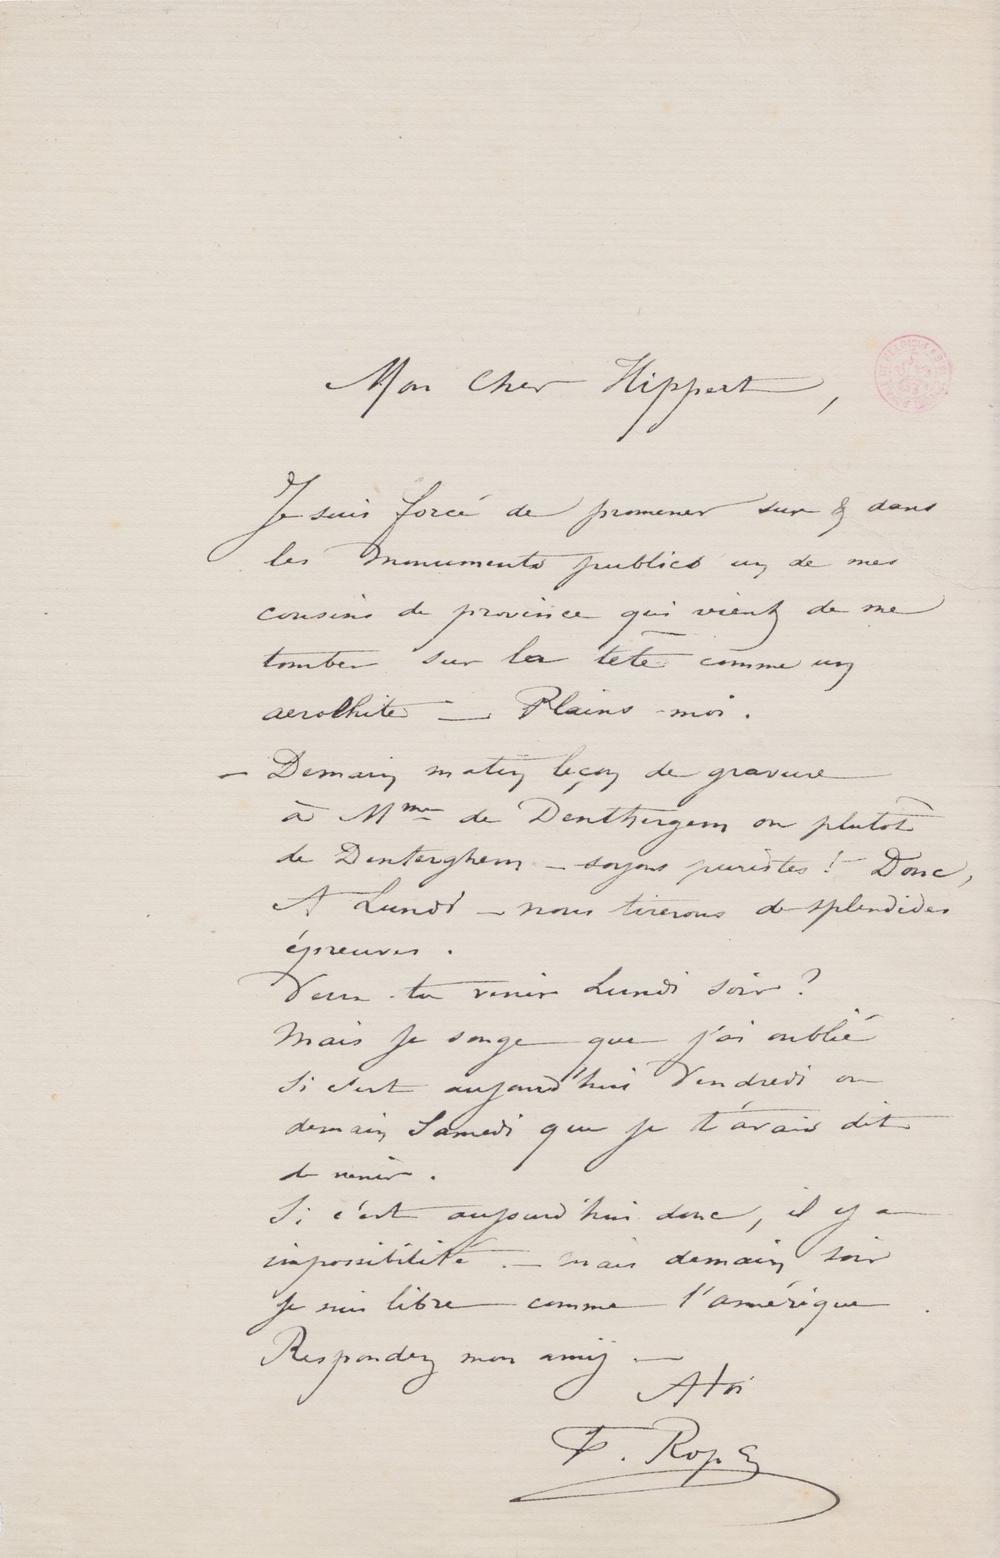 Mon Cher Hippert,
Je suis forcé de promener sur & dans
les Monuments publics un de mes
cousins de province qui vient de me
tomber sur la tête comme un
aerolhite — Plains-moi.
— Demain matin leçon de gravure
à Mme de Denthergem ou plutôt
de Denterghem — soyons puristes ! Donc,
A Lundi — nous tirerons de splendides
épreuves.
Veux-tu venir Lundi soir ?
Mais je songe que j'ai oublié
si c'est aujourd'hui Vendredi ou
demain Samedi que je t'avais dit
de venir.
Si c'est aujourd'hui donc, il y a
impossibilité. — mais demain soir
je suis libre comme l'amérique.
Respondez mon amy —
A toi
F. Rops